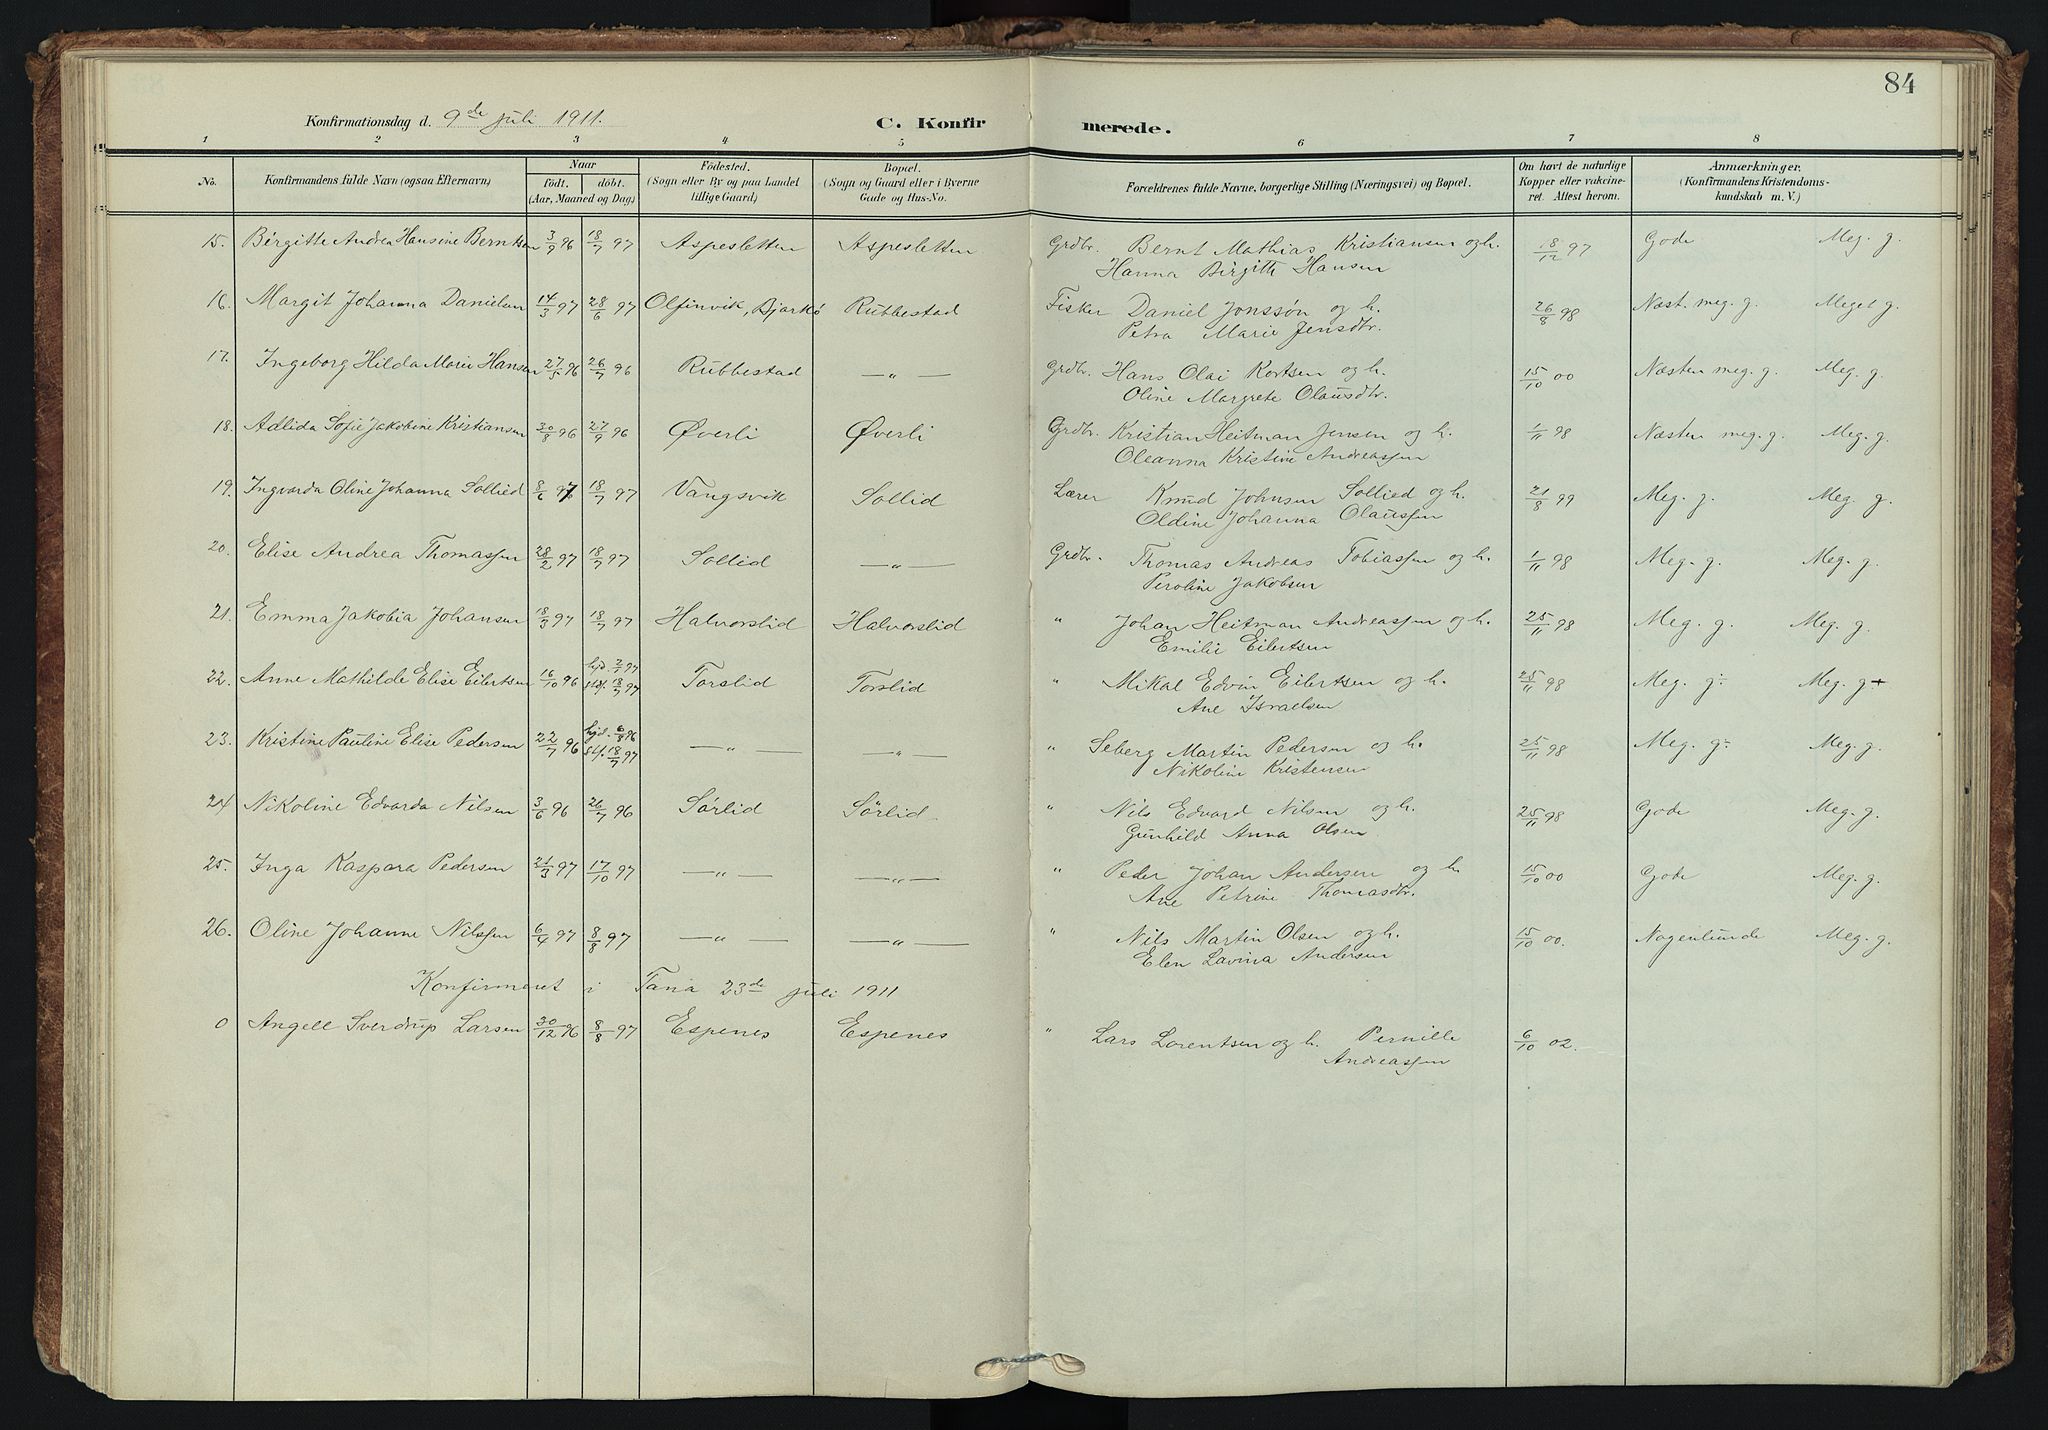 84
Konfirmationsdag d. 9de juli 1911.
C. Konfirmerede.
1 2 3 4 5 6 7 8
No. Konfirmandens fulde Navn (ogsaa Efternavn) Naar födt. döbt. (Aar, Maaned og Dag) Födested. (Sogn eller By og paa Landet tillige Gaard) Bopæl. (Sogn og Gaard eller i Byerne Gade og Hus-No. Forældrenes fulde Navne, borgerlige Stilling (Næringsvei) og Bopæl. Om havt de naturlige Kopper eller vakcineret. Attest herom. Anmærkninger. (Konfirmandens Kristendomskundskab m. V.)
15. Birgitte Andrea Hansine Berntsen 3/9 96 18/7 97 Aspesletten Aspesletten Grdbr. Bernt Mathias Kristiansen og h. 18/12 97 Gode Meg. g.
Hanna Birgitte Hansen
16. Margit Johanna Danielsen 14/3 97 28/6 97 Olfinvik, Bjarkö Rubbestad Fisker Daniel Jonssøn og h. 26/8 98 Næst. meg. g. Meget g.
Petra Marie Jensdtr.
17. Ingeborg Hilda Marie Hansen 27/5 96 26/7 96 Rubbestad —„— Grdbr. Hans Olai Kortsen og h. 15/10 00 Næsten meg. g. Meg. g.
Oline Margrete Olausdtr.
18. Adlida Sofie Jakobine Kristiansen 30/8 96 27/9 96 Øverli Øverli Grdbr. Kristian Heitman Jensen og h. 1/11 98 Næsten meg. g. Meg. g.
Oleanna Kristine Andreassen
19. Ingvarda Oline Johanna Sollied 8/6 97 18/7 97 Vangsvik Sollid Lærer Knud Johnsen Sollied og h. 21/8 99 Meg. g. Meg. g.
Oldine Johanna Olaussen
20. Elise Andrea Thomassen 28/2 97 18/7 97 Sollid —„— Grdbr. Thomas Andreas Tobiassen og h. 1/11 98 Meg. g. Meg. g.
Peroline Jakobsen
21. Emma Jakobia Johansen 18/3 97 18/7 97 Halvorslid Halvorslid „ Johan Heitman Andreassen og h. 25/11 98 Meg. g. Meg. g.
Emilie Eilertsen
22. Anne Mathilde Elise Eilertsen 16/10 96 hjd. 2/1 97 stf. 18/7 97 Torslid Torslid „ Mikal Edvin Eilertsen og h. 25/11 98 Meg. g÷ Meg. g+
Ane Israelsen
23. Kristine Pauline Elise Pedersen 22/7 96 hjd. 6/8 96 stf. 18/7 97 —„— —„— „ Seberg Martin Pedersen og h. 25/11 98 Meg. g÷ Meg. g.
Nikoline Kristensen
24 Nikoline Edvarda Nilsen 3/6 96 26/7 96 Sørlid Sørlid „ Nils Edvard Nilsen og h. 25/11 98 Gode Meg. g.
Gunhild Anna Olsen
25. Inga Kaspara Pedersen 21/3 97 17/10 97 —„— —„— „ Peder Johan Andersen og h 15/10 00 Gode Meg. g.
Ane Petrine Thomasdtr.
26. Oline Johanne Nilssen 6/4 97 8/8 97 —„— —„— „ Nils Martin Olsen og h. 15/10 00. Nogenlunde Meg. g.
Elen Lavina Andersen
Konfirmeret i Tana 23de juli 1911
0 Angell Sverdrup Larsen 30/12 96 8/8 97 Espenes Espenes „ Lars Lorentsen og h. Pernille 6/10 02.
Andreassen